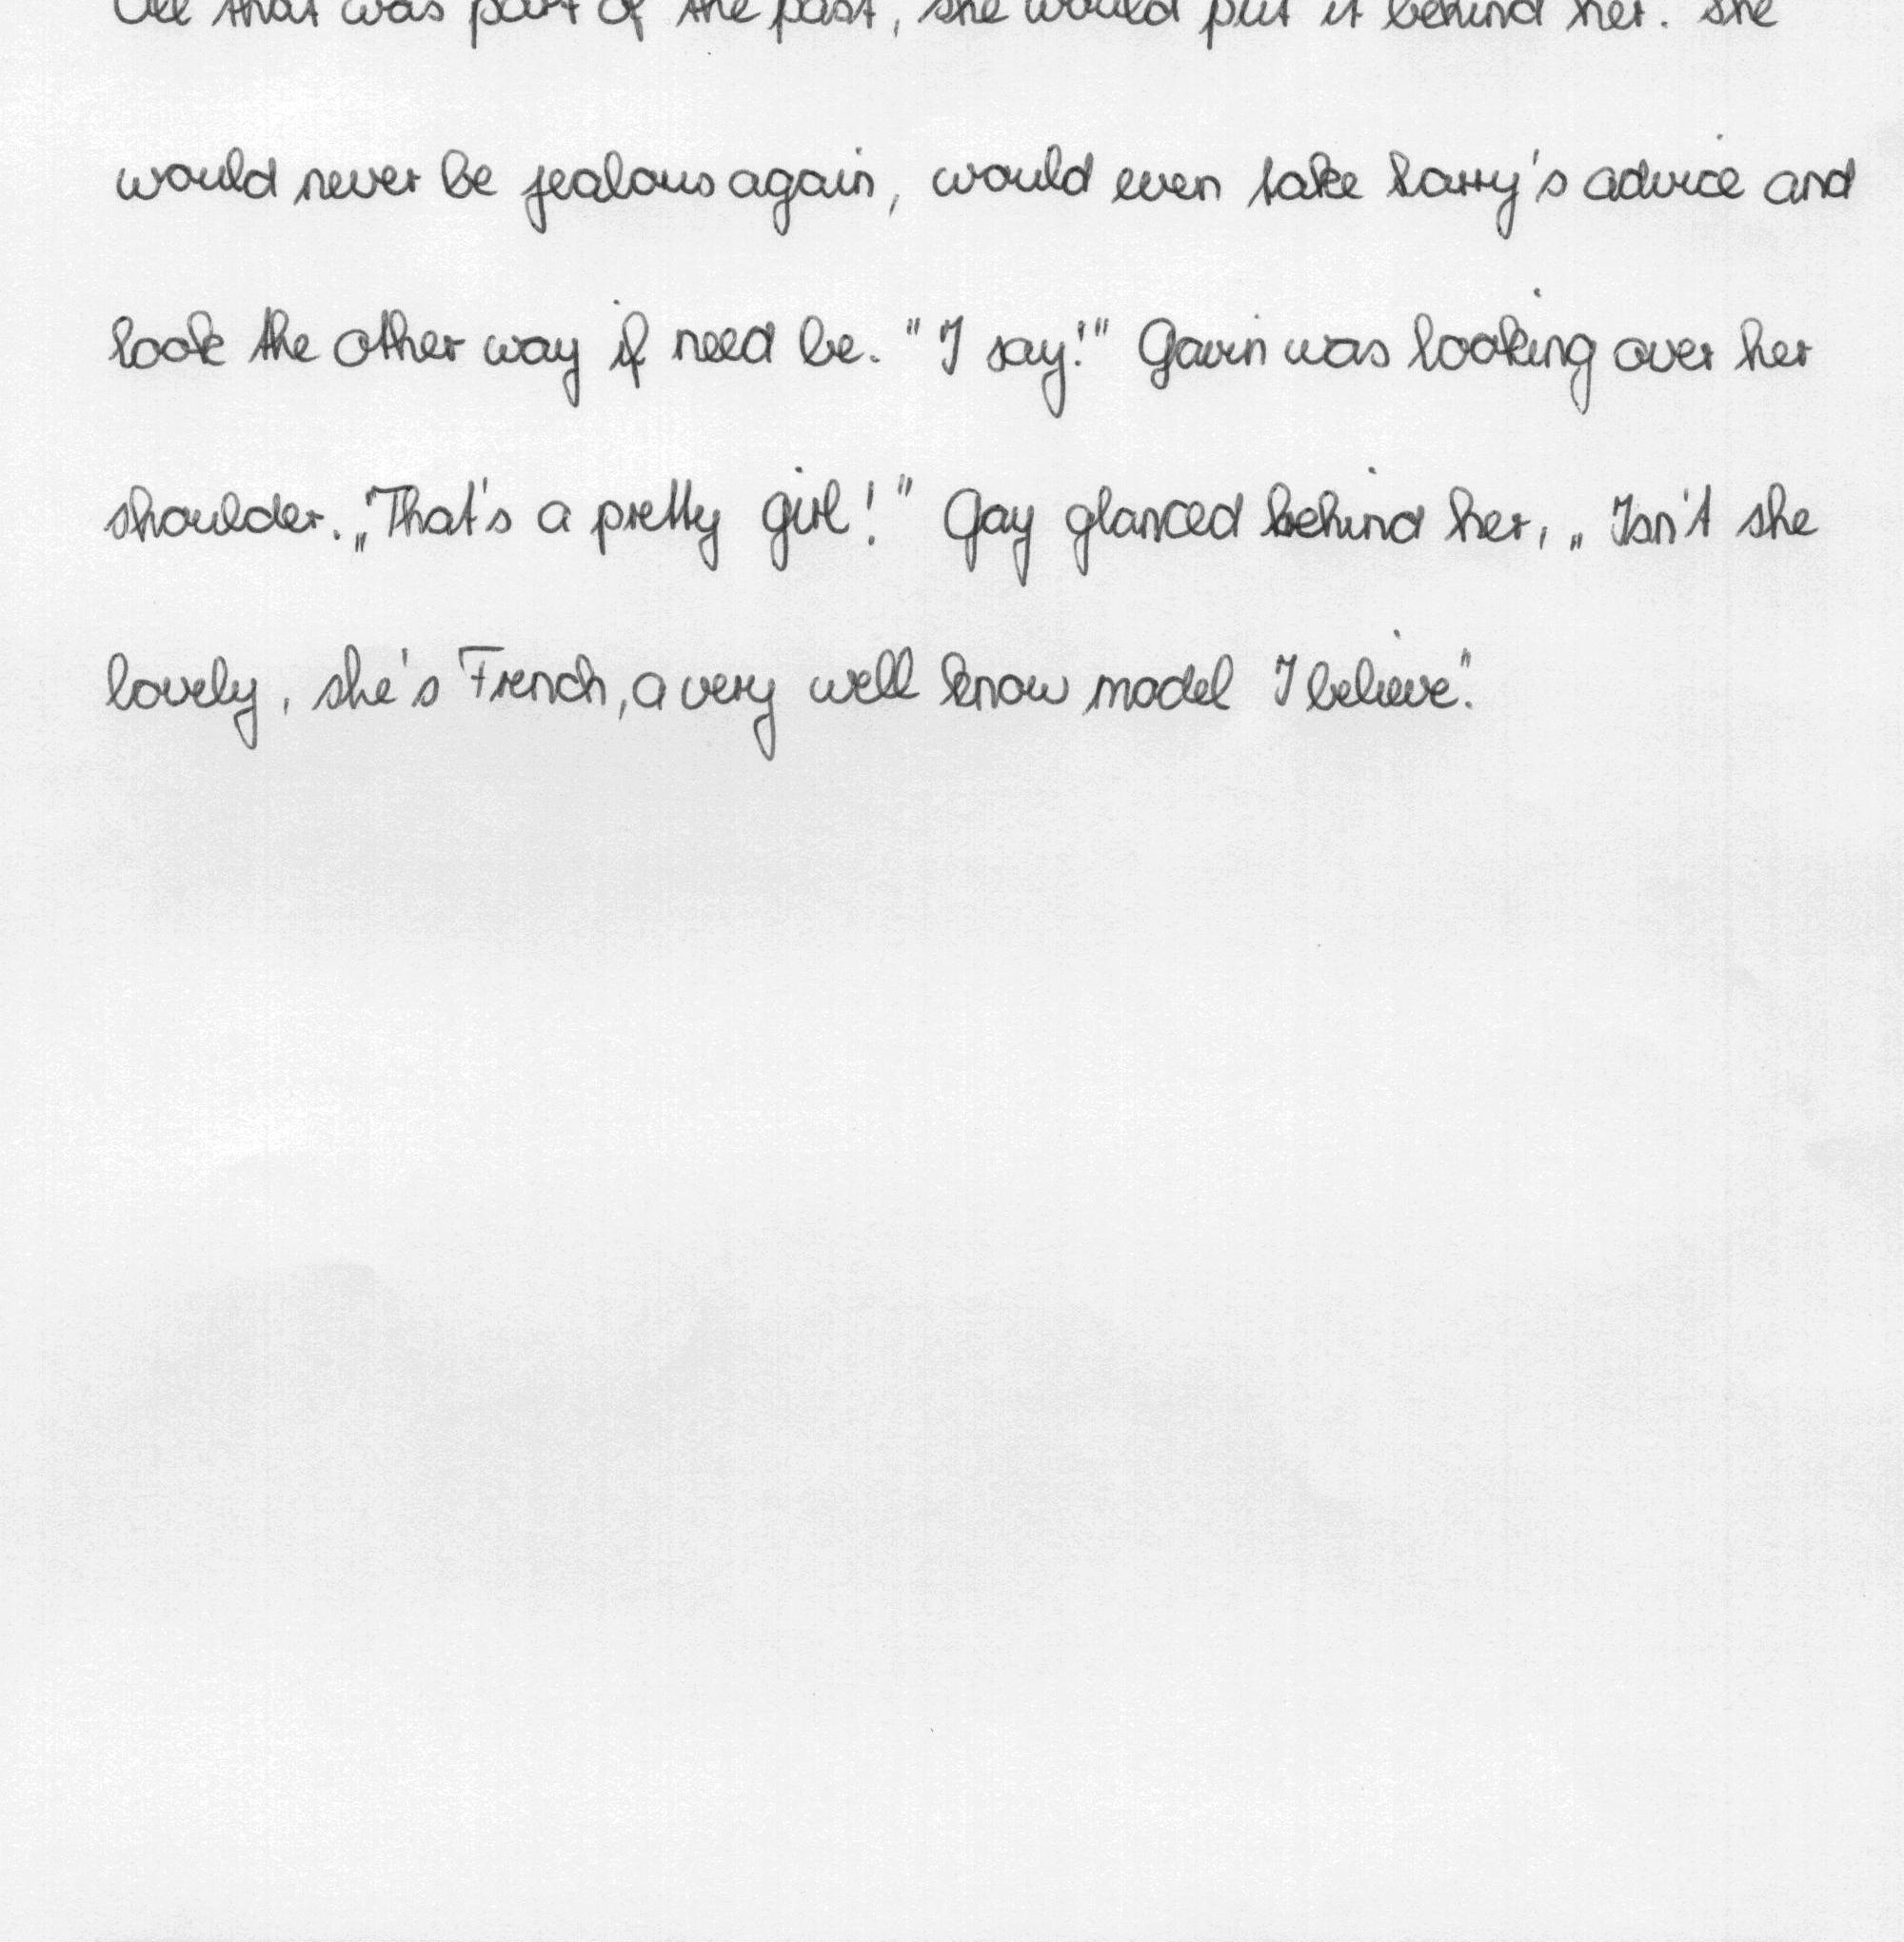 All that was part of the past, she would put it behind her. She
would never be jealous again, would even take Larry's advice and
look the other way if need be. "I say!" Gavin was looking over her
shoulder. „That's a pretty girl!" Gay glanced behind her, „Isn't she
lovely, she's French, a very well know model I believe".